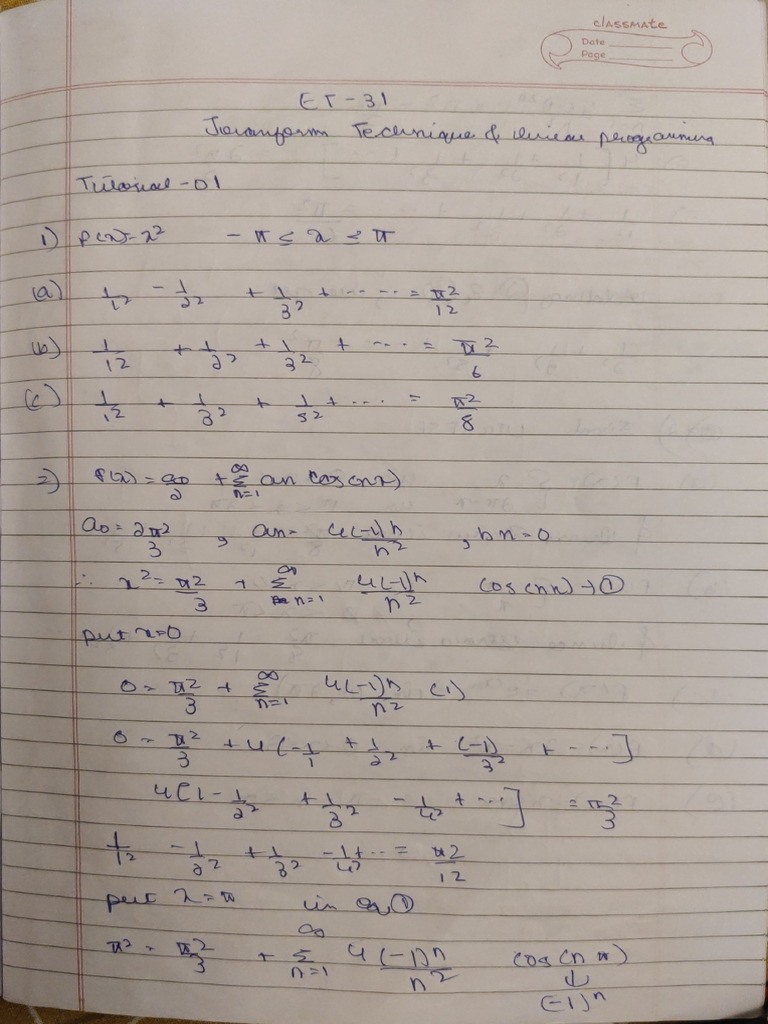 classmate
Date
Page
ET-31
Transform Technique & Linear programming
Tutorial-01
1) f(x)=x² -π ≤ x ≤ π
(a) 1/1² - 1/2² + 1/3² + ---- ---- = π²/12
(b) 1/1² + 1/2² + 1/3² + ---- = π²/6
(c) 1/1² + 1/3² + 1/5² + ---- = π²/8
2) f(x) = a0/2 + ∞Σn=1 an cos(nx)
a0 = 2π²/3 , an = 4(-1)^n/n² , bn = 0
∴ x² = π²/3 + ∞Σn=1 4(-1)^n/n² cos(nx) → ①
put x=0
0 = π²/3 + ∞Σn=1 4(-1)^n/n² (1)
0 = π²/3 + 4(-1/1 + 1/2² + (-1)/3² + ----]
4[1 - 1/2² + 1/3² - 1/4² + ---] = π²/3
1/1² - 1/2² + 1/3² - 1/4² + -- = π²/12
put x=π in eq ①
π² = π²/3 + ∞Σn=1 4(-1)^n/n² cos(nπ)
↓
(-1)^n